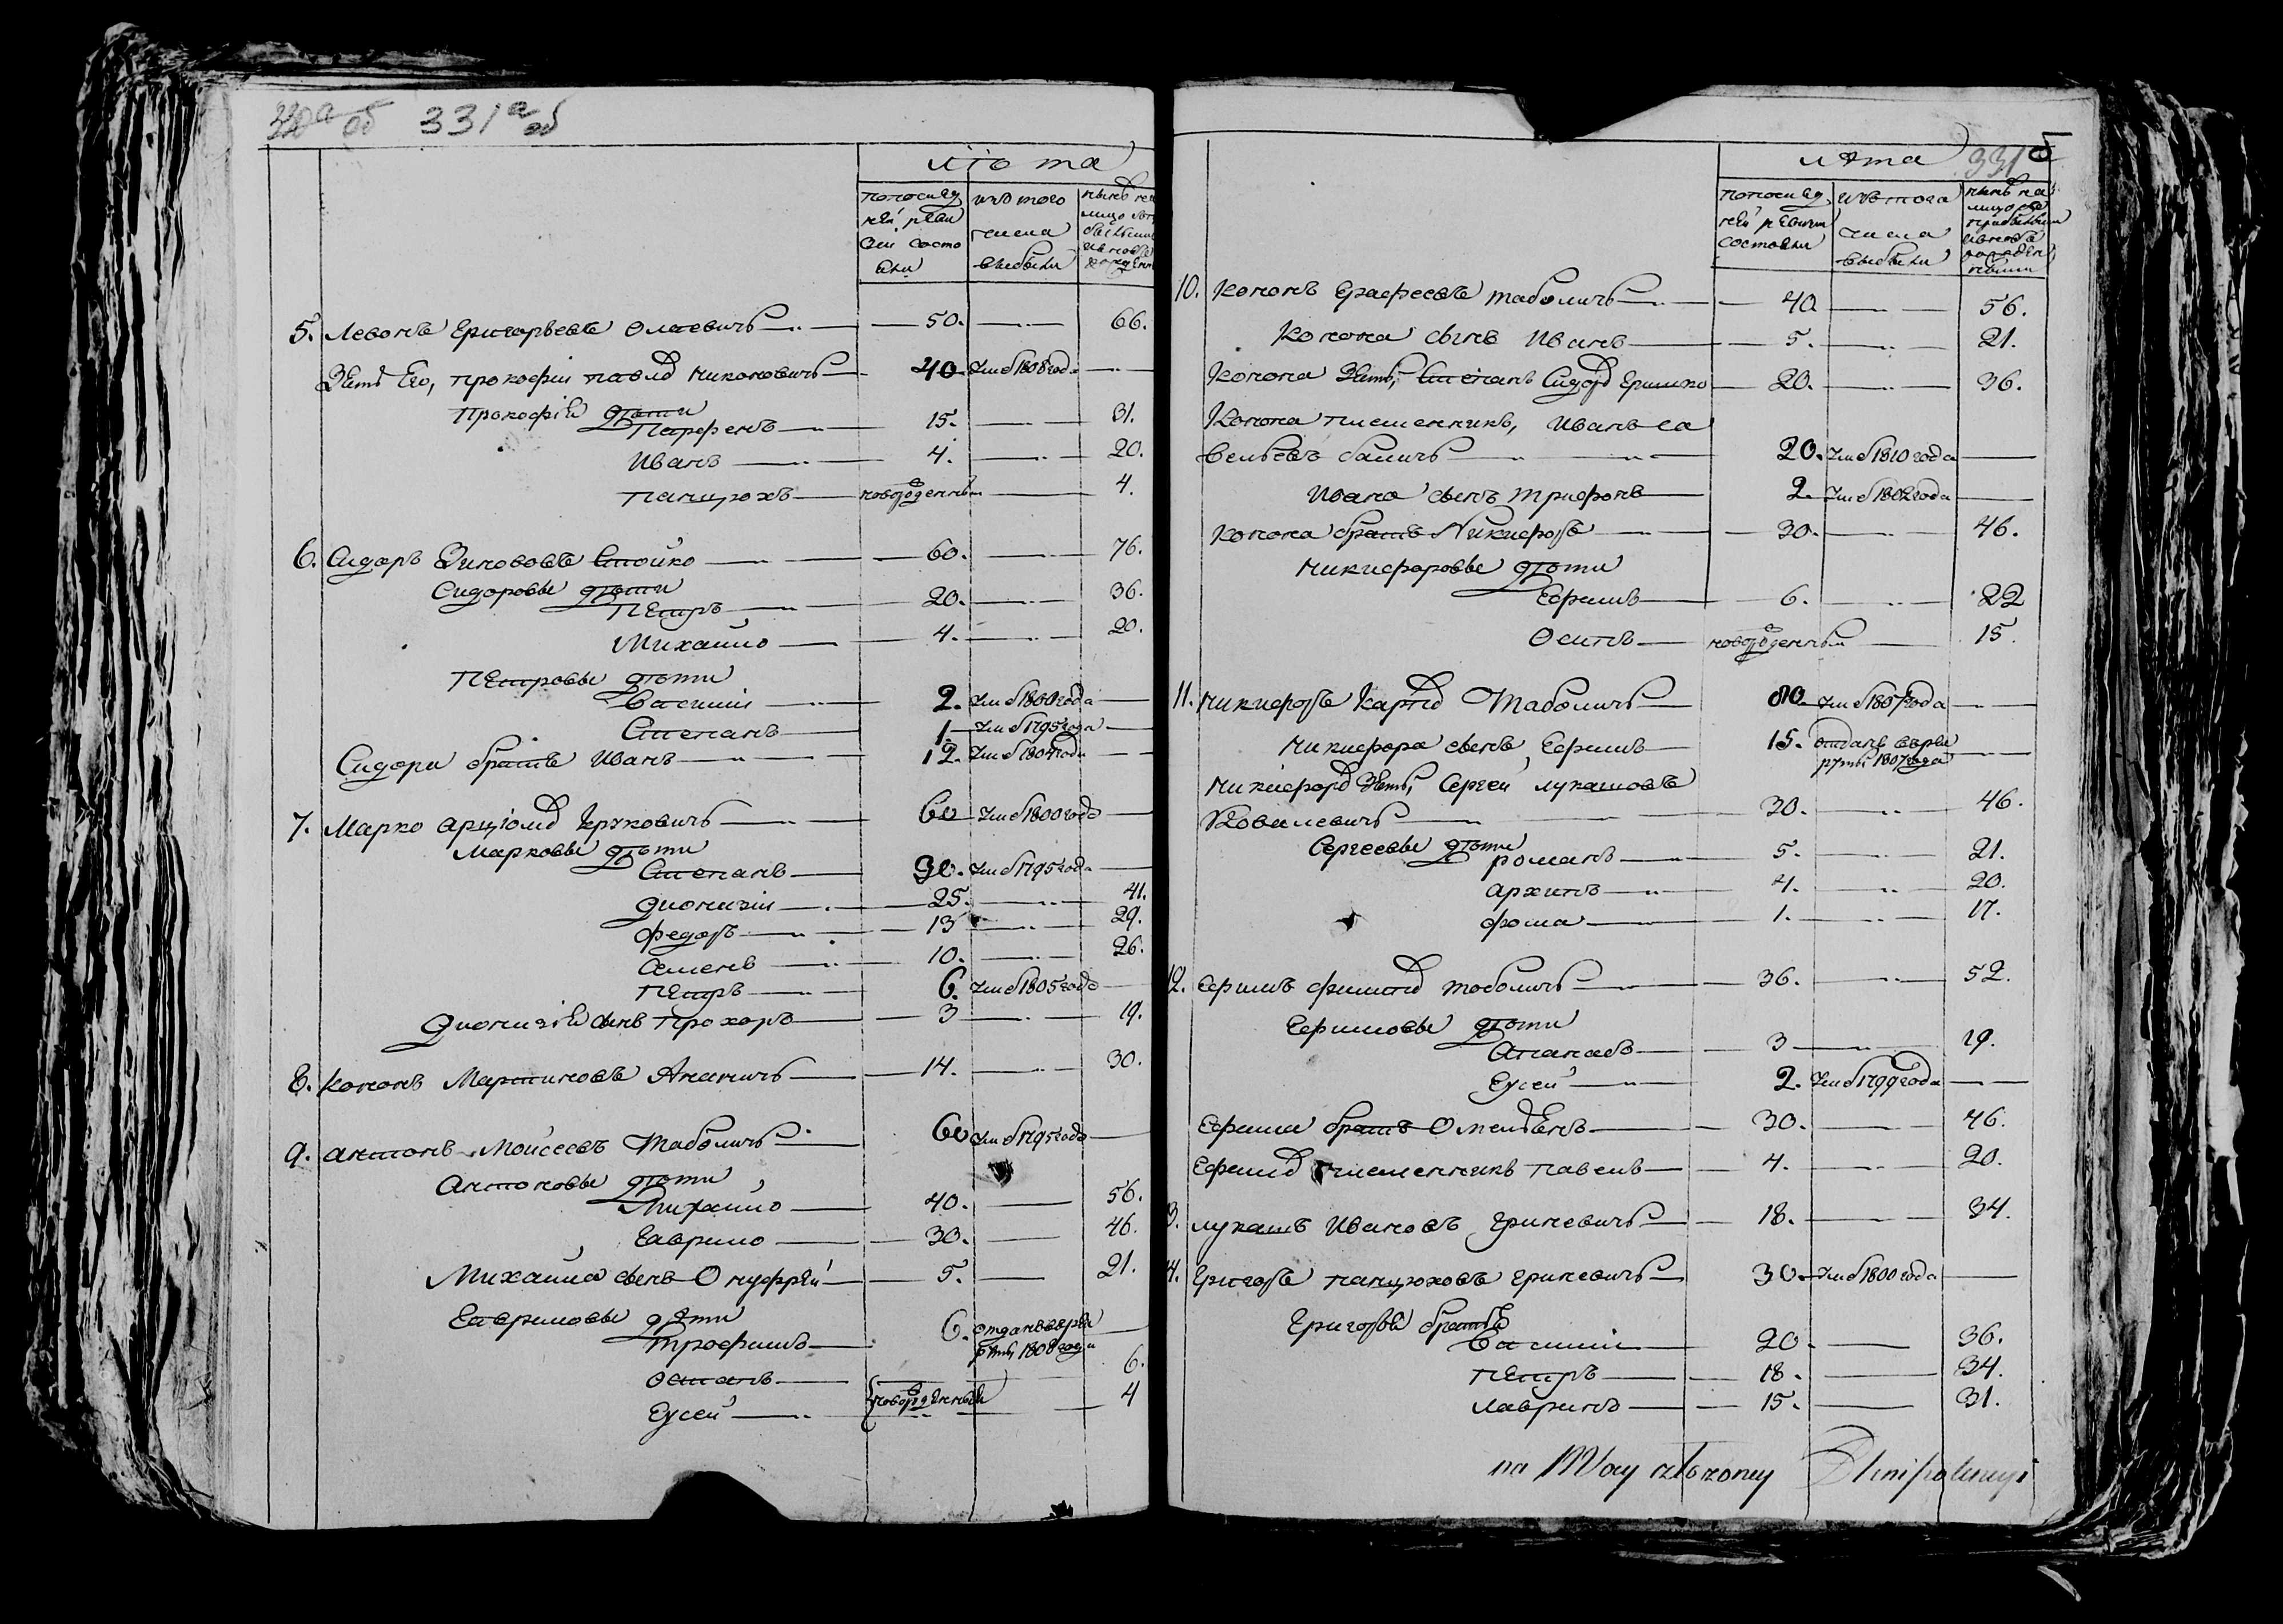 331а об
лѣта
попослед
ней реви
зіи состо
яли
изтого
числа
выбыли
5. Левонъ Григорьевъ Олиевичъ — 50. — 66.
Зять Его, прокофіи павлов никоновичъ — 40 Умеѣ 1808 год —
Прокофія дѣти
Парфенъ — 15. — 31.
Иванъ — 4. — 20.
панцрохъ — новорожденный — 4.
6. Сидоръ Зинововъ Стойко — 60. — 76.
Сидоровы дѣти
Петръ — 20. — 36.
Михайло — 4. — 20.
Петровы дѣти
Василіи — 2. Умеѣ 1800 года —
Степанъ — 1. Умеѣ 1795 года —
Сидора братъ Иванъ — 12. Умеѣ 1804 года —
7. Марко арціомов Круковичъ — 60 Умеѣ 1800 года —
Марковы дѣти
Степанъ — 30. Умеѣ 1795 года —
дионизіи — 25. — 41.
федоръ — 13 — 29.
Семенъ — 10. — 26.
Петръ — 6. Умеѣ 1805 года —
дионизія сынъ Прохоръ — 3 — 19.
8. Кононъ Мартиновъ Ананичъ — 14. — 30.
9. антонъ Моисеевъ Таболичъ — 60 Умеѣ 1795 года —
Антоновы дѣти
Михайло — 40. — 56.
Гаврило — 30. — 46.
Михайла сынъ Онуфрей — 5. — 21.
Гавриловы дѣти
трофимъ — 6. отданъ врек
руты 1808 года
Остапъ — 6.
Евсей — новорожденныи — 4
331 б
лѣта
попослед
ней ревизіи
состояли
изтого
числа
выбыли
10. Кононъ Ерафеевъ таболичъ — 40 — 56.
Конона сынъ Иванъ — 5. — 21.
Конона Зять, Степанъ Сидоров Гришко — 20. — 36.
Конона племенникъ, Иванъ са
вельевъ баличъ — 20. Умеѣ 1810 года —
Ивана сынъ трифонъ — 2. Умеѣ 1802 года —
Конона братъ Никифоръ — 30. — 46.
Никифоровы дѣти
Ефимъ — 6. — 22
Осипъ — новорожденный — 15.
11. Никифоръ Карпов Таболичъ — 80. Умеѣ 1807 года —
Никифора сынъ, Ефимъ — 15. отданъ врек
руты 1807 года —
Никифоров Зять, Сергей лукашовъ
Ковалевичъ — 30. — 46.
Сергеевы дѣти
романъ — 5. — 21.
архипъ — 4. — 20.
фома — 1. — 17.
12. Ефимъ филипов таболичъ — 36. — 52.
Ефимовы дѣти
Апанасъ — 3 — 19.
Евсей — 2. Умеѣ 1799 года —
Ефима братъ Омельянъ — 30. — 46.
Ефимов племенникъ павелъ — 4. — 20.
3. лукашъ Ивановъ Гриневичъ — 18. — 34.
4. Григоръ панцроховъ гриневичъ — 30. Умеѣ 1800 года —
Григоръя братья
Василіи — 20. — 36.
Петръ — 18. — 34.
лавринъ — 15. — 31.